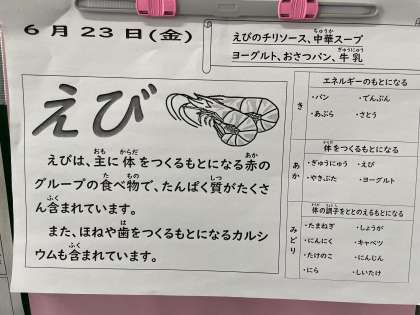 6月23日(金)
えびのチリソース、中華スープ
ヨーグルト、おさつパン、牛乳
えび
えびは、主に体をつくるもとになる赤の
グループの食べ物で、たんぱく質がたくさ
ん含まれています。
また、ほねや歯をつくるもとになるカルシ
ウムも含まれています。
き
エネルギーのもとになる
・パン ・でんぷん
・あぶら ・さとう
あか
体をつくるもとになる
・ぎゅうにゅう ・えび
・やきぶた ・ヨーグルト
みどり
体の調子をととのえるもとになる
・たまねぎ ・しょうが
・にんにく ・キャベツ
・たけのこ ・にんじん
・にら ・しいたけ